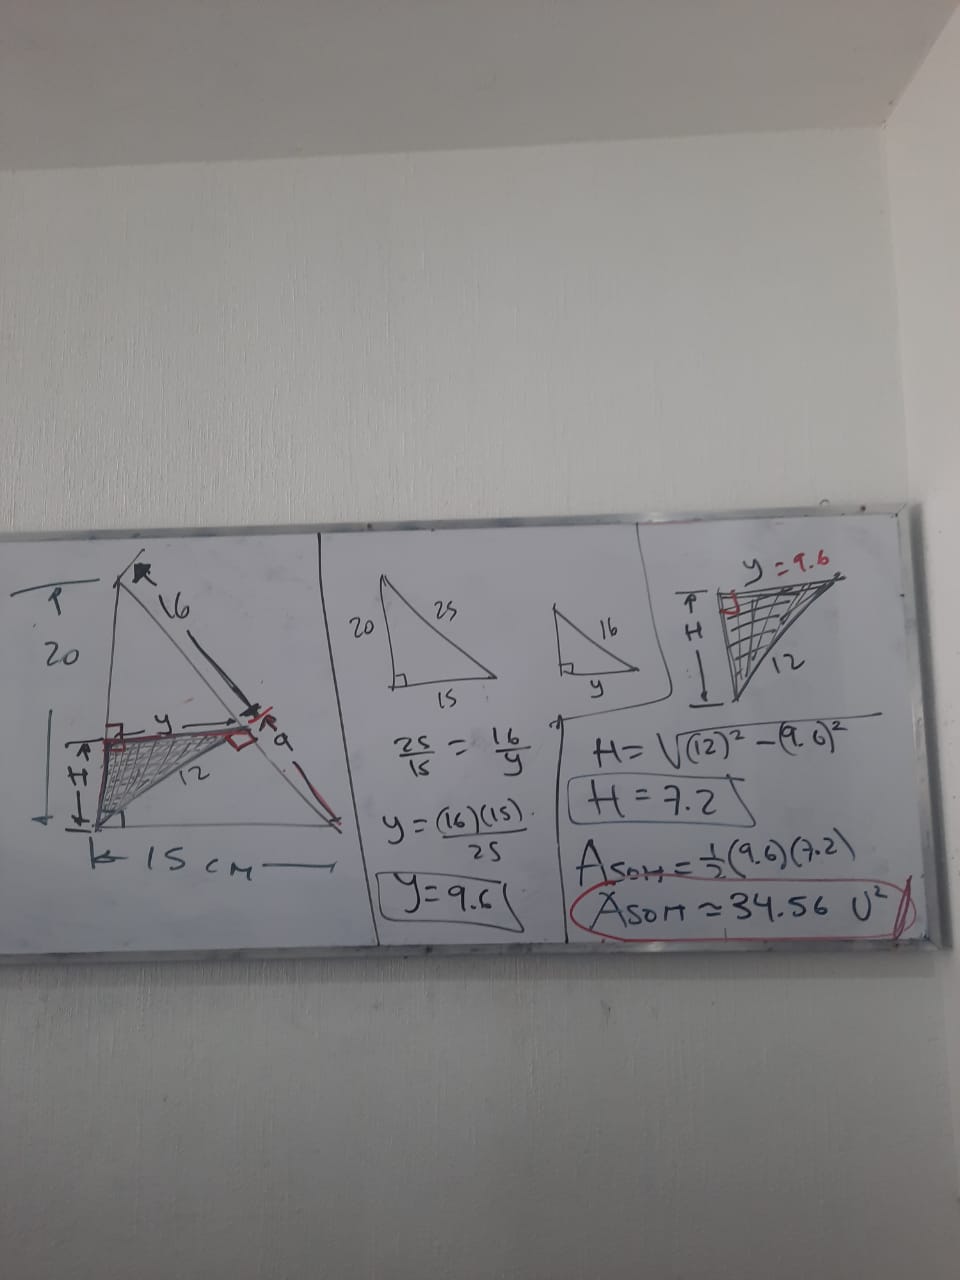 16
20
y
9
H
12
15 cm
20
25
15
16
y
25/15 = 16/y
y = (16)(15)/25
y = 9.6
y = 9.6
H
12
H = √(12)² - (9.6)²
H = 7.2
ASOM = 1/2 (9.6)(7.2)
ASOM ≈ 34.56 U²